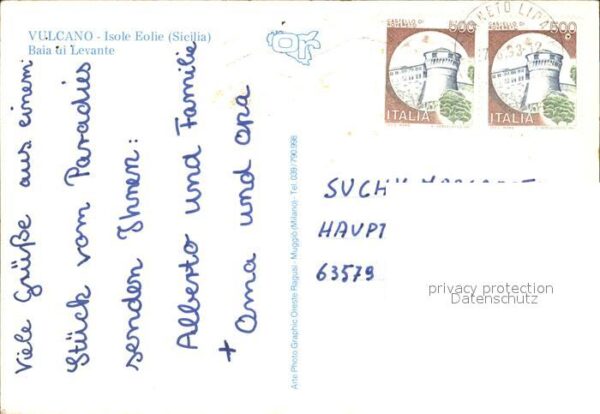 VULCANO - Isole Eolie (Sicilia)
Baia di Levante
Viele Grüße aus einem
Stück vom Paradies
senden Ihnen:
Alberto und Familie
+ Oma und opa
Arte Photo Graphic Oreste Ragusi - Muggiò (Milano) - Tel. 039/790.998
CASTELLO DI
ROVERETO
500
ITALIA
CASTELLO DI
ROVERETO
500
ITALIA
HAUPT
63579
privacy protection
Datenschutz